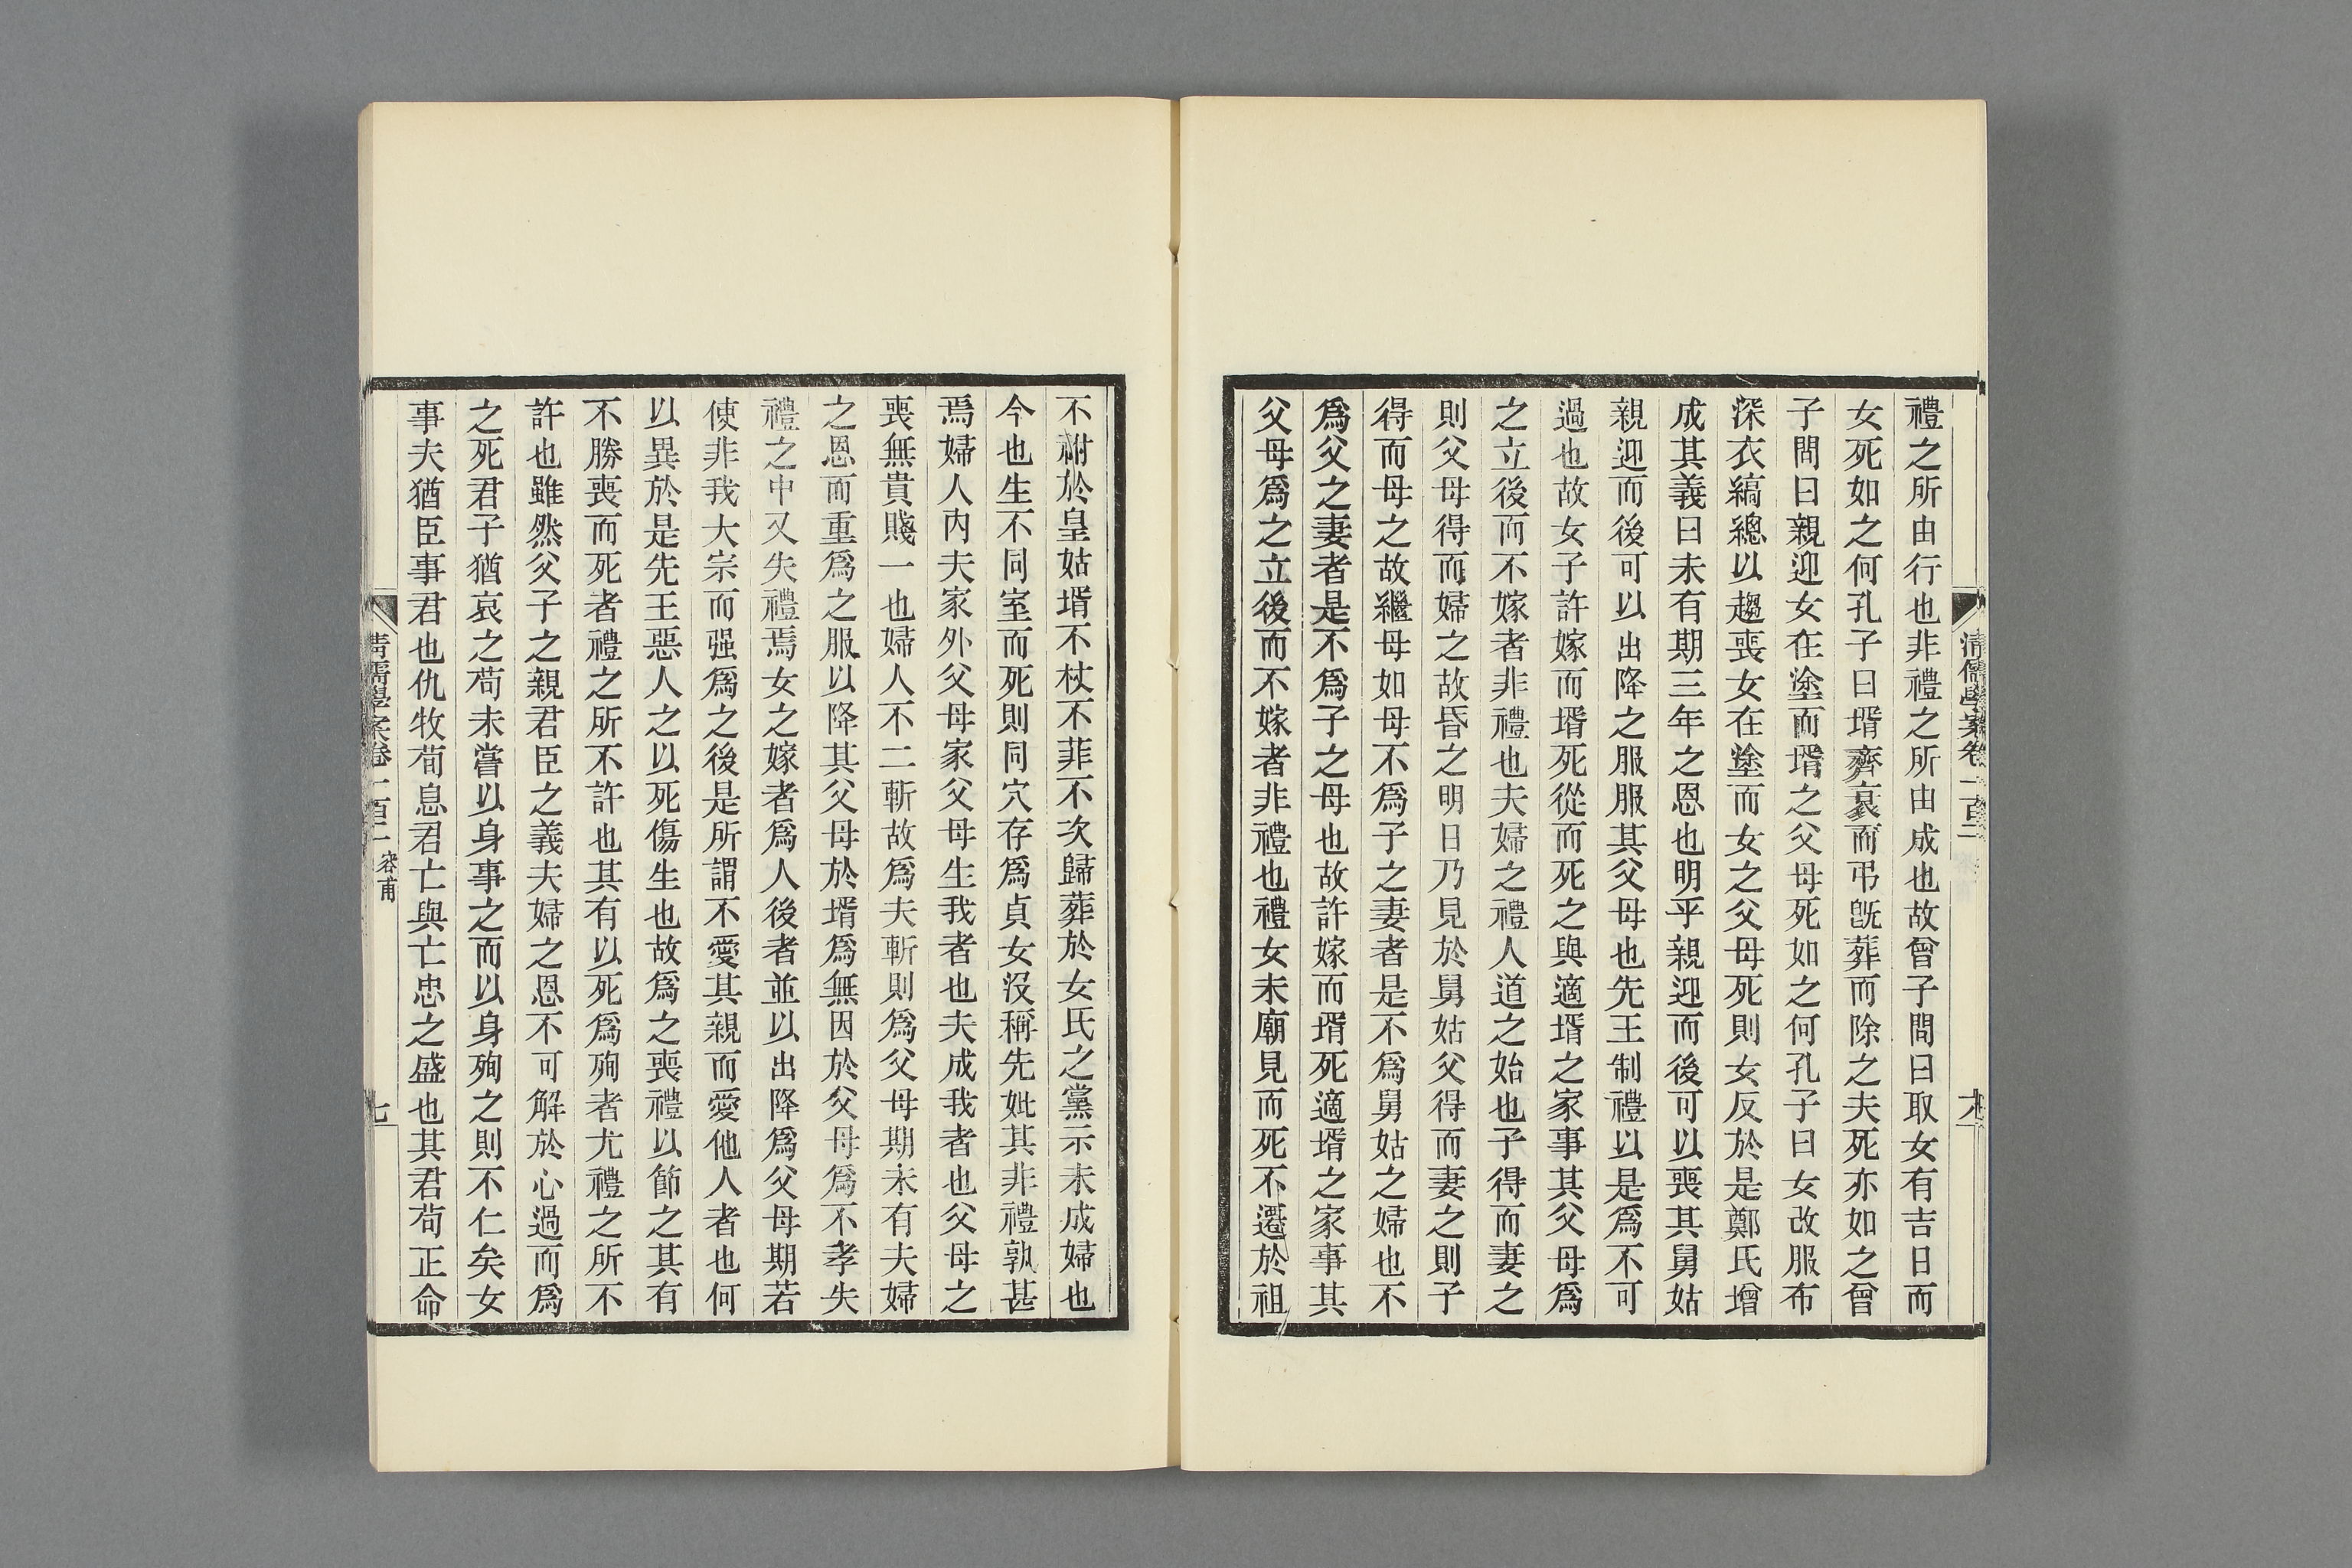 禮之所由行也非禮之所由成也故曾子問曰取女有吉日而
女死如之何孔子曰壻齊衰而弔旣葬而除之夫死亦如之曾
子問曰親迎女在塗而壻之父母死如之何孔子曰女改服布
深衣縞總以趨喪女在塗而女之父母死則女反於是鄭氏增
成其義曰未有期三年之恩也明乎親迎而後可以喪其舅姑
親迎而後可以出降之服服其父母也先王制禮以是爲不可
過也故女子許嫁而壻死從而死之與適壻之家事其父母爲
之立後而不嫁者非禮也夫婦之禮人道之始也子得而妻之
則父母得而婦之故昏之明日乃見於舅姑父得而妻之則子
得而母之故繼母如母不爲子之妻者是不爲舅姑之婦也不
爲父之妻者是不爲子之母也故許嫁而壻死適壻之家事其
父母爲之立後而不嫁者非禮也禮女未廟見而死不遷於祖
清儒學案卷一百二
不祔於皇姑壻不杖不菲不次歸葬於女氏之黨示未成婦也
今也生不同室而死則同穴存爲貞女沒稱先妣其非禮孰甚
焉婦人內夫家外父母家父母生我者也夫成我者也父母之
喪無貴賤一也婦人不二斬故爲夫斬則爲父母期未有夫婦
之恩而重爲之服以降其父母於壻爲無因於父母爲不孝失
禮之中又失禮焉女之嫁者爲人後者並以出降爲父母期若
使非我大宗而强爲之後是所謂不愛其親而愛他人者也何
以異於是先王惡人之以死傷生也故爲之喪禮以節之其有
不勝喪而死者禮之所不許也其有以死爲殉者尤禮之所不
許也雖然父子之親君臣之義夫婦之恩不可解於心過而爲
之死君子猶哀之苟未嘗以身事之而以身殉之則不仁矣女
事夫猶臣事君也仇牧荀息君亡與亡忠之盛也其君苟正命
清儒學案卷一百二 容甫 七